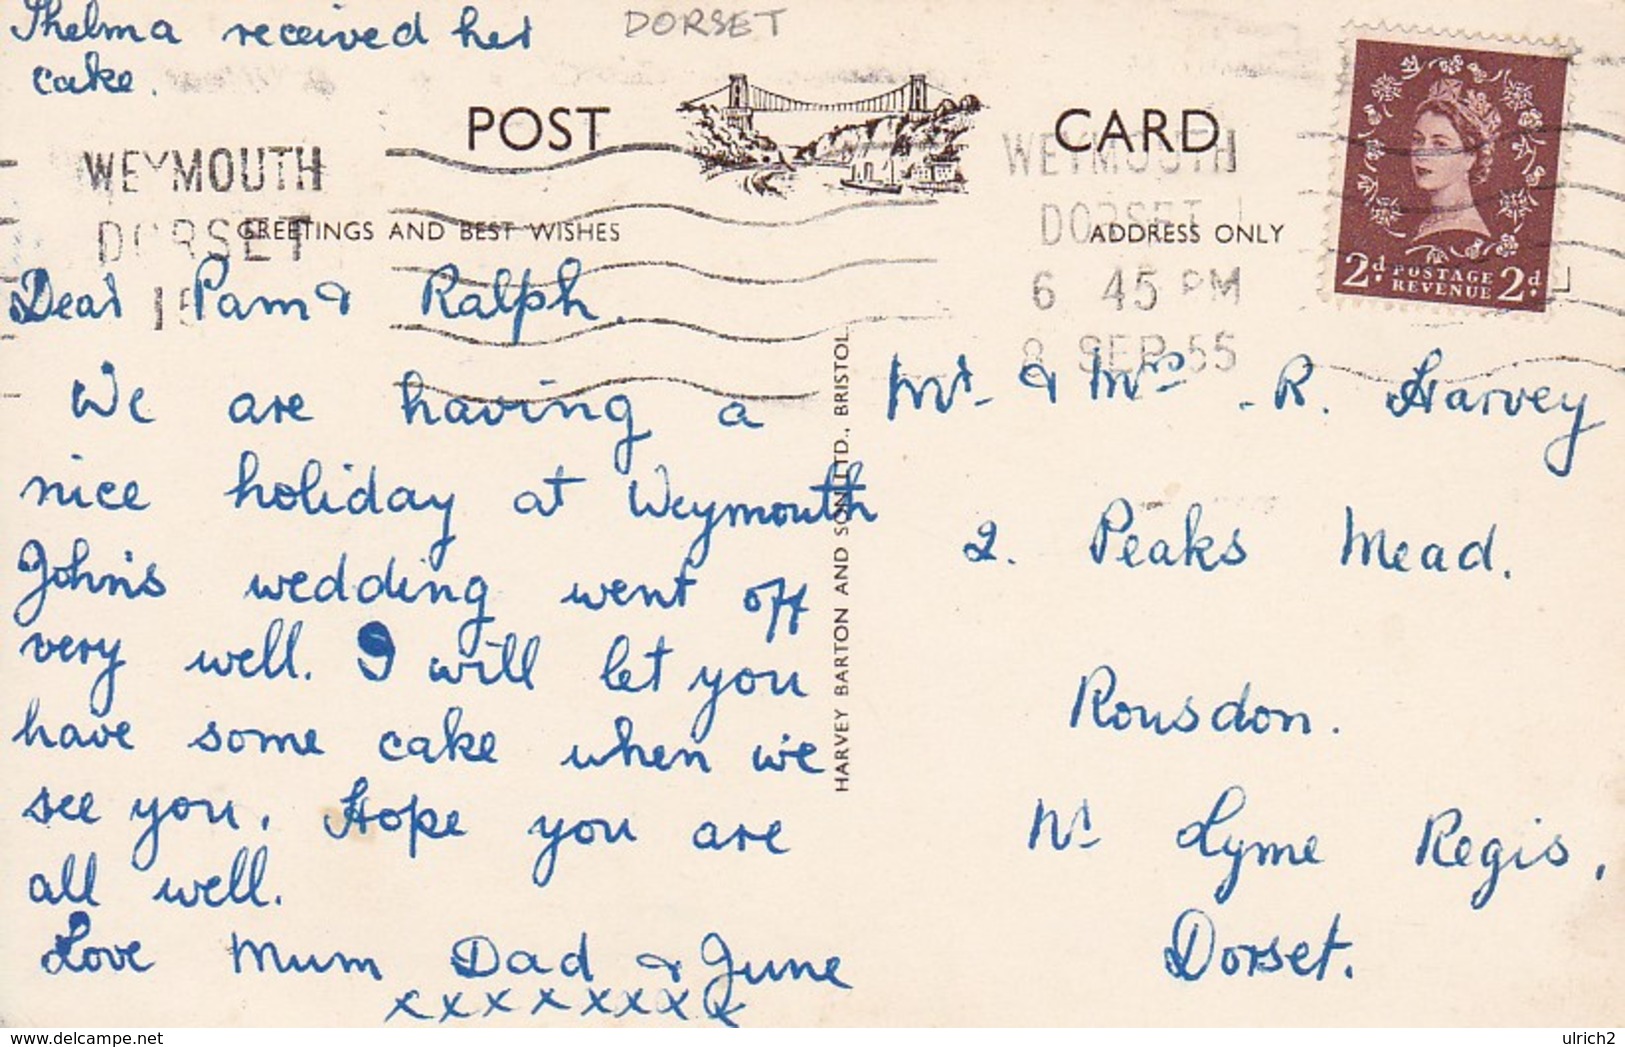 Thelma received her
cake.
DORSET
POST CARD
WEYMOUTH
DORSET
WEYMOUTH
DORSET
6 45 PM
8 SEP 55
GREETINGS AND BEST WISHES
ADDRESS ONLY
2d POSTAGE REVENUE 2d
Dear Pam & Ralph.
We are having a
nice holiday at Weymouth
John's wedding went off
very well. I will let you
have some cake when we
see you. Hope you are
all well.
Love Mum Dad & June
xxxxxxxxx
HARVEY BARTON AND SON LTD., BRISTOL.
Mr. & Mrs. R. Harvey
2. Peaks Mead.
Rousdon.
Nr Lyme Regis,
Dorset.
delcampe.net
ulrich2